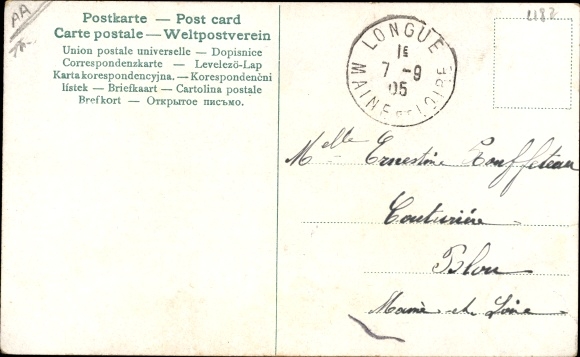 AA
Postkarte — Post card
Carte postale — Weltpostverein
Union postale universelle — Dopisnice
Correspondenzkarte — Levelezö-Lap
Karta korespondencyjna. — Korespondenční
lístek — Briefkaart — Cartolina postale
Brefkort — Открытое письмо.
1182
LONGUÉ
1E
7 -9
05
MAINE ET LOIRE
Melle Ernestine Bouffeteau
Couturière
Blou
Maine et Loire